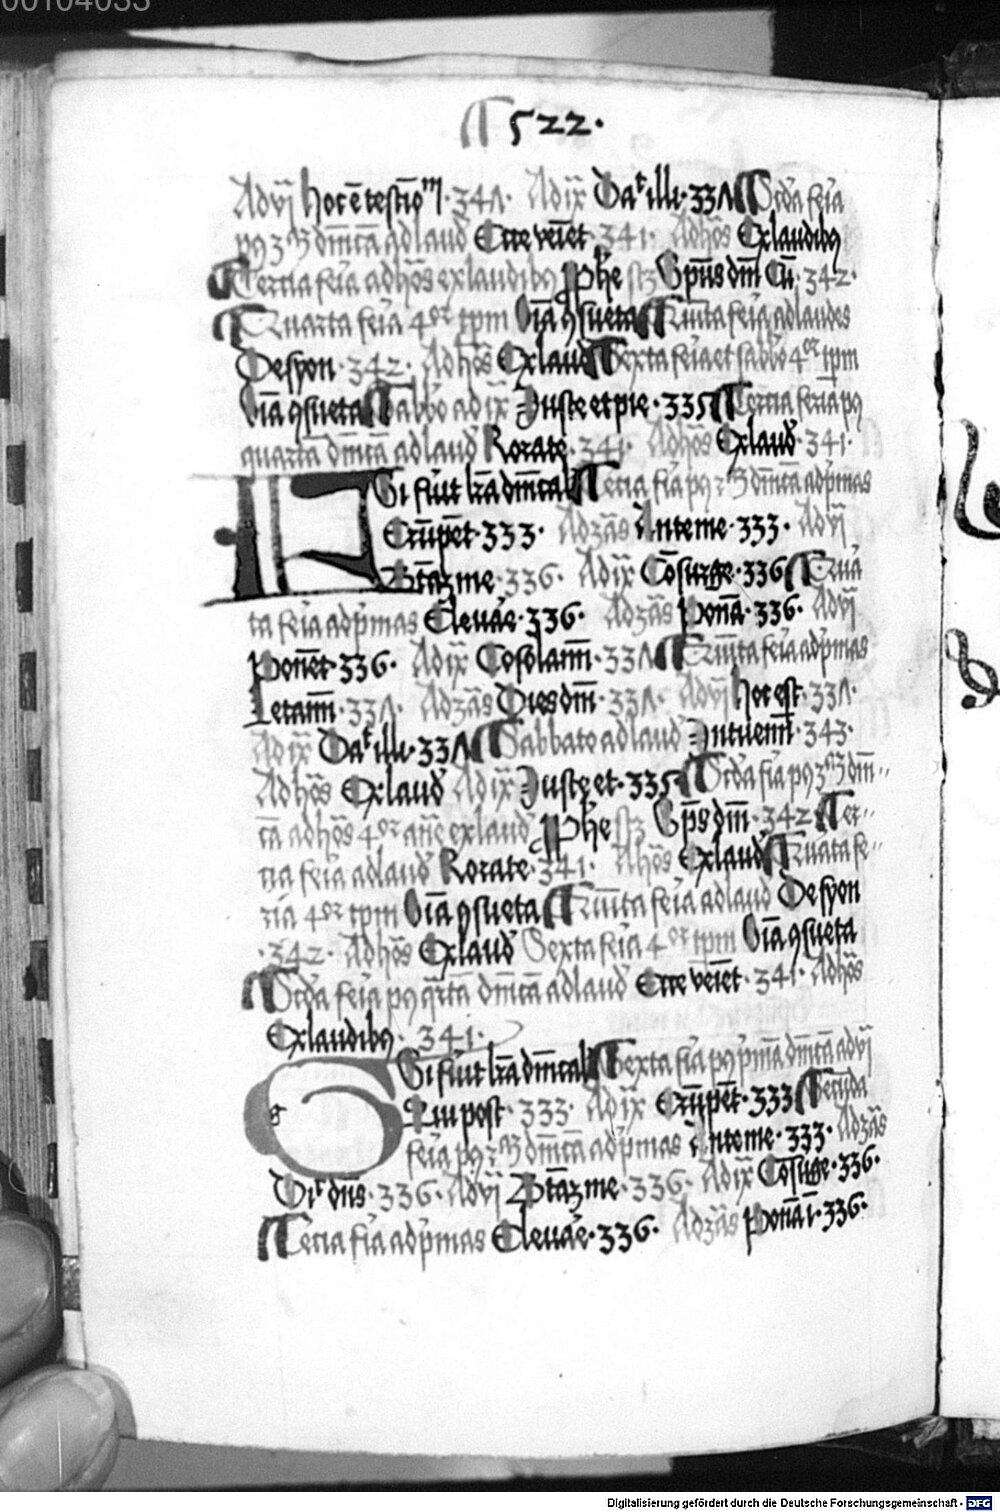 00104033
¶ 522.
Ad vj hoc ē testīoꝫ 341. Ad ix Dat illi 331 ¶ Scda feīa
pꝰ 3 dm̄cā ad laud Ecce veīet 341. Ad hōs Exlaudibꝰ
¶ Tercia feīa ad hōs exlaudibꝰ pͥhe sꝫ Spūs dm̄ Cū. 342.
¶ Quarta feīa 4or tpm Oīa ꝯsueta ¶ Quīta feīa ad laudes
De syon. 342. Ad hōs Exlaud ¶ Sexta feīa et sabbo 4or tpm
Oīa ꝯsueta ¶ Sabbo ad ix Juste et pie. 335 ¶ Tercia feria pꝰ
quartā dm̄cā ad laud Rorate. 341. Ad hōs Exlaud 341.
Si fūit lrā dm̄cal ¶ Tecia fīa pꝰ dm̄cā ad pͥmas
Erūpēt. 333. Ad 3ās Ante me. 333. Ad vj
me. 336. Ad ix Cōsurge. 336 ¶ Quā
ta feīa ad pͥmas Eleuāe. 336. Ad 3ās Ponā. 336. Ad vj
Ponēt. 336. Ad ix Cōsolamī. 331 ¶ Quīta feīa ad pͥmas
Letamī. 331. Ad 3ās Dies dm̄. 331. Ad vj hoc est. 331.
Ad ix Dat illi. 331 ¶ Sabbato ad laud Intuemī. 343.
Ad hōs Exlaud Ad ix Juste et. 335 ¶ Scda fīa pꝰ 3 dm̄
cā ad hōs 4or añe exlaud pͥhe sꝫ Spūs dm̄. 342 ¶ Ter
cia feīa ad laud Rorate. 341. Ad hōs Exlaud ¶ Quāta fe
ria 4or tpm Oīa ꝯsueta ¶ Quīta feīa ad laud De syon
. 342. Ad hōs Exlaud Sexta feīa 4or tpm Oīa ꝯsueta
¶ Scda feīa pꝰ qrtā dm̄cā ad laud Ecce veīet. 341. Ad hōs
Exlaudibꝰ. 341.
Si fūit lrā dm̄cal ¶ Sexta fīa pꝰ pͥmā dm̄cā ad vj
Qui post. 333. Ad ix Erūpēt. 333 ¶ Secūda
feīa pꝰ dm̄cā ad pͥmas Ante me. 333. Ad 3ās
dn̄s. 336. Ad vj me. 336. Ad ix Cōsurge. 336.
¶ Tecia fīa ad pͥmas Eleuāe. 336. Ad 3ās Ponā ī. 336.
Digitalisierung gefördert durch die Deutsche Forschungsgemeinschaft - DFG